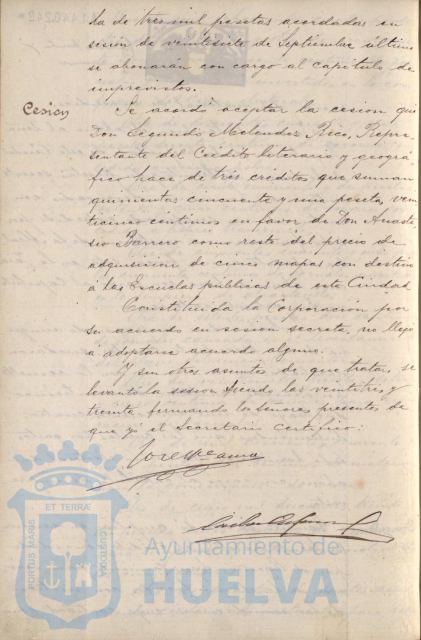 ha de tres mil pesetas acordadas en
sesión de veintisiete de Septiembre último
se abonarán con cargo al capítulo de
imprevistos.
Cesion
Se acordó aceptar la cesion que
Don Segundo Melendez Rico, Repre-
sentante del Crédito literario y geográ-
fico hace de tres créditos que suman
quinientas cincuenta y una pesetas, vein
ticinco centimos en favor de Don Anasta
sio Barrero como resto del precio de
adquisicion de cinco mapas con destino
á las Escuelas públicas de esta Ciudad.
Constituida la Corporación por
su acuerdo en sesion secreta, no llegó
á adoptarse acuerdo alguno.
Y sin otros asuntos de que tratar, se
levantó la sesion siendo las veintitres y
treinta, firmando los Señores presentes de
que yó el Secretario certifico:
PORTUS MARIS
ET TERRÆ
CUSTODIA
Ayuntamiento de
HUELVA